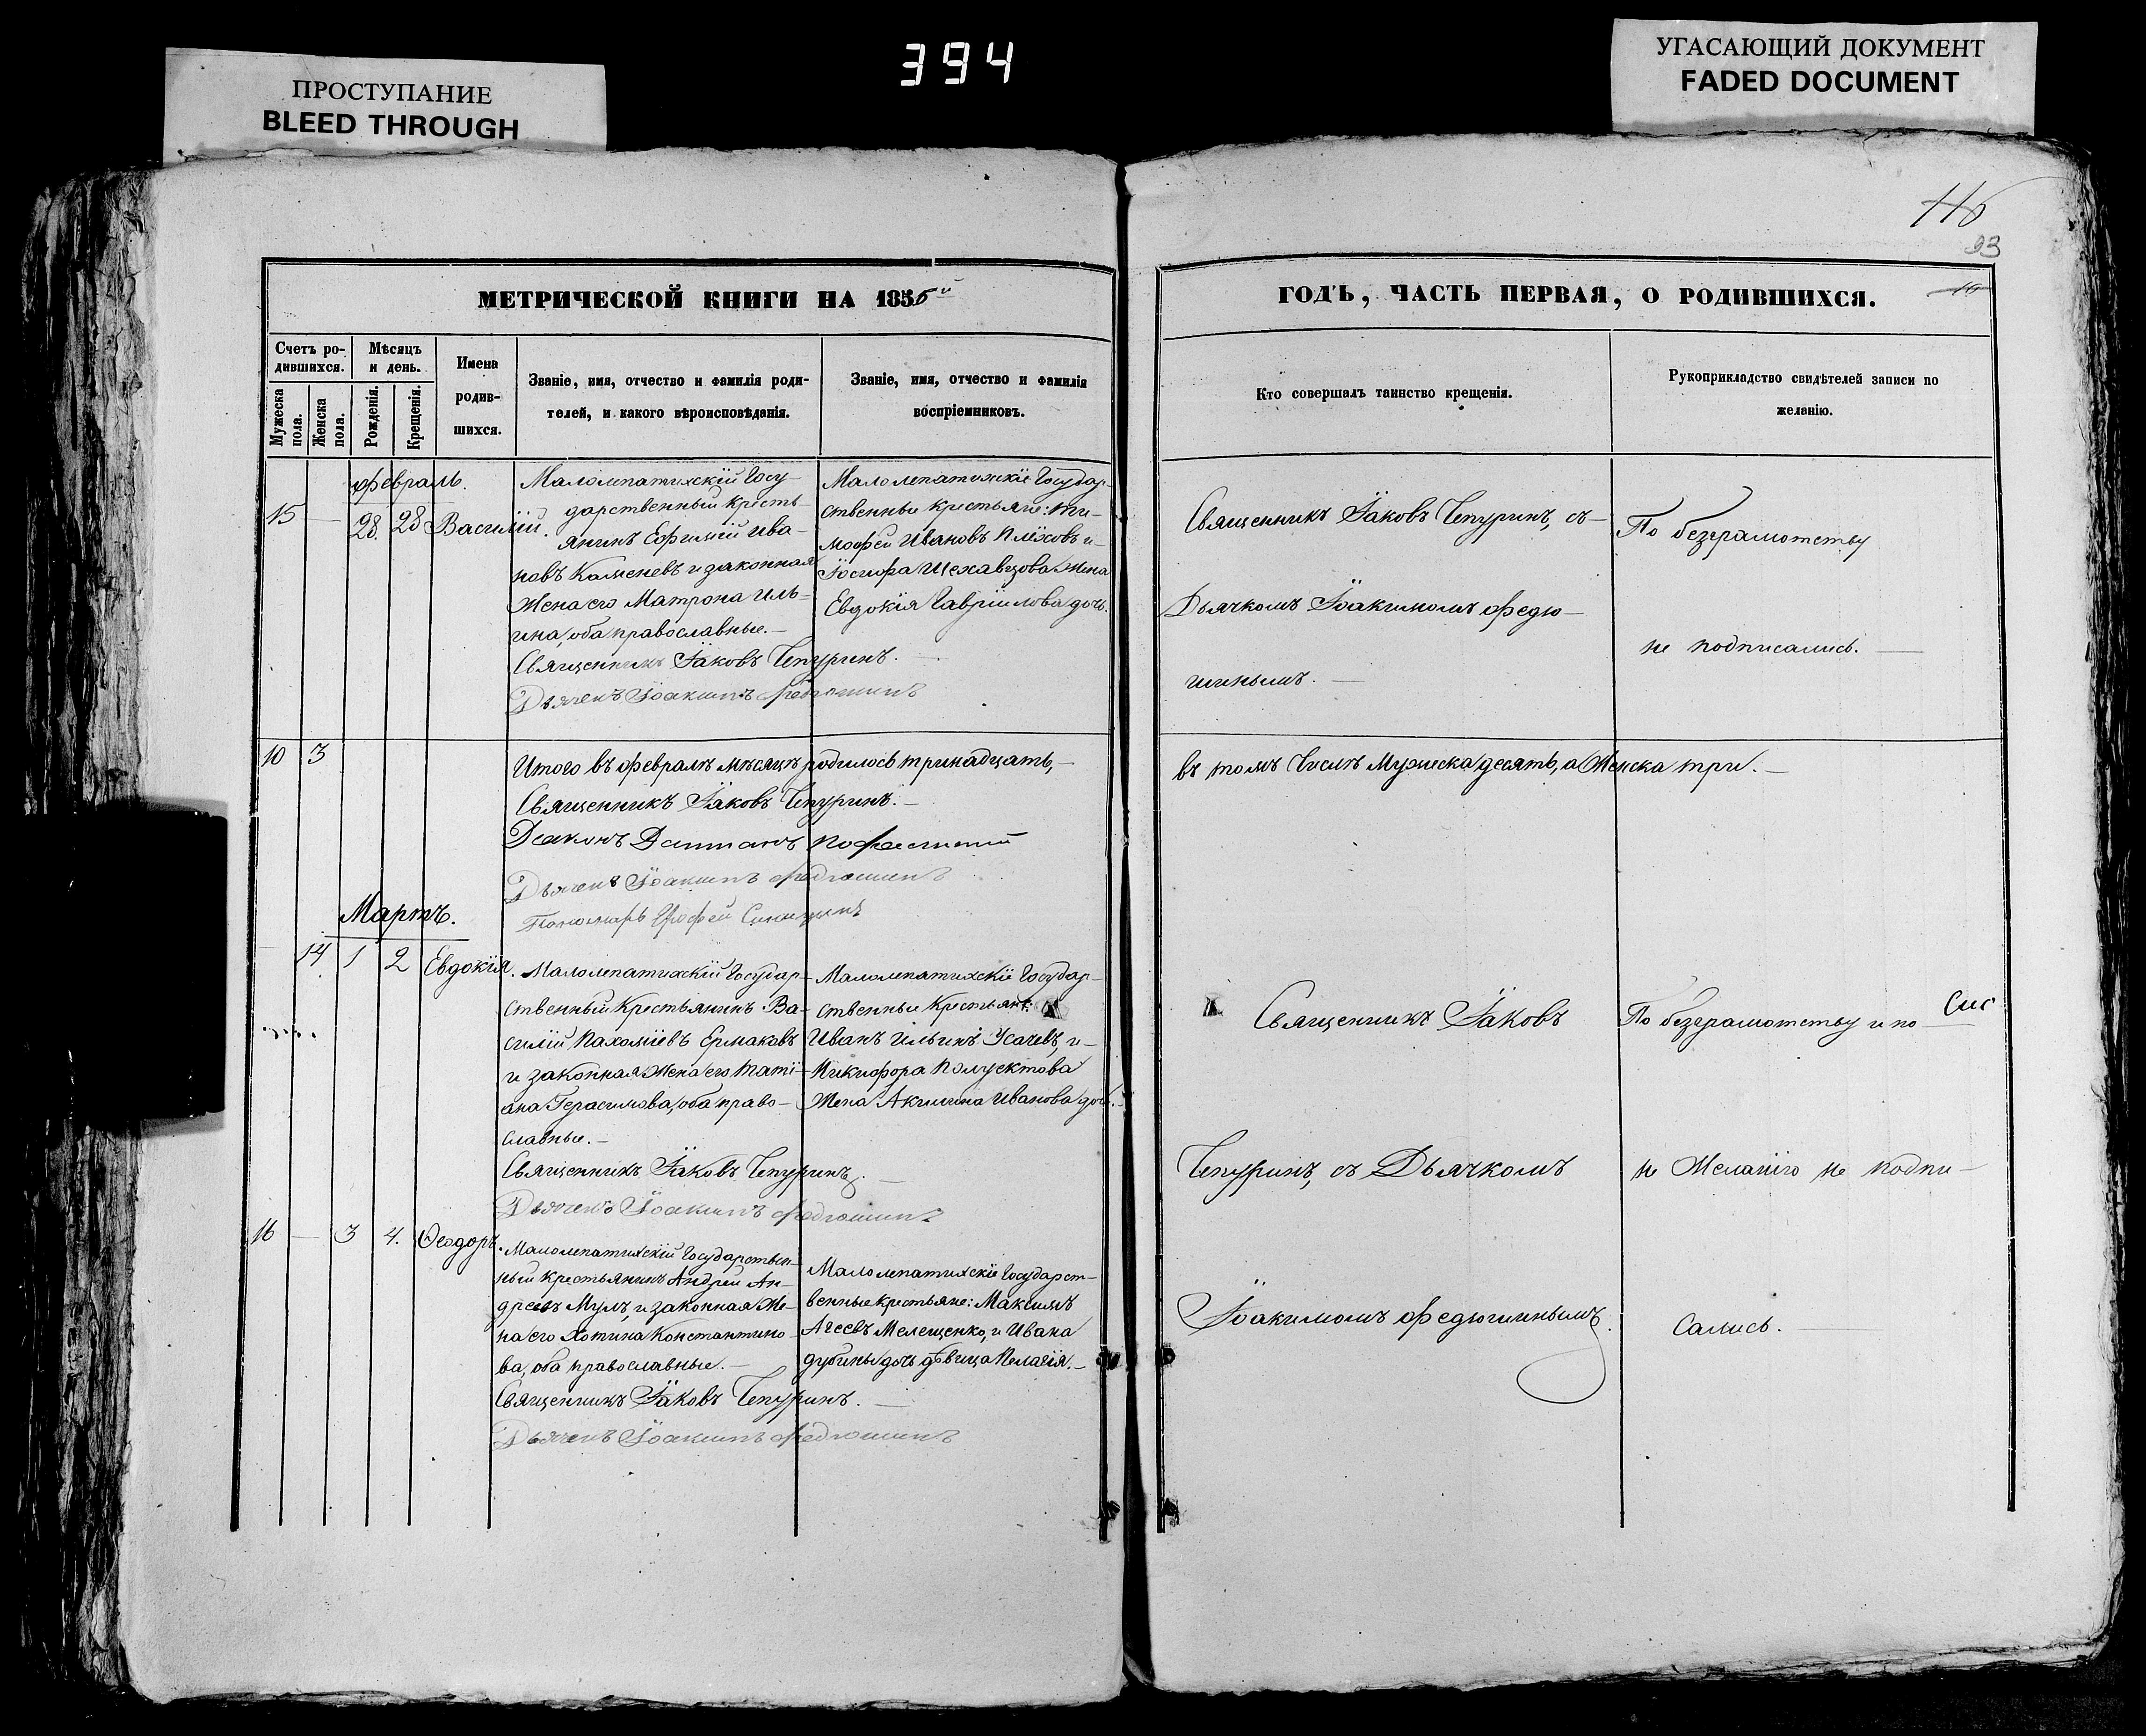 394
ПРОСТУПАНИЕ
BLEED THROUGH
УГАСАЮЩИЙ ДОКУМЕНТ
FADED DOCUMENT
116
93
МЕТРИЧЕСКОЙ КНИГИ НА 1856й
ГОДЪ, ЧАСТЬ ПЕРВАЯ, О РОДИВШИХСЯ.
Счетъ ро-
дившихся.
Мужеска пола.
Женска пола.
Мѣсяцъ
и день.
Рожденія.
Крещенія.
Имена
родив-
шихся.
Званіе, имя, отчество и фамилія роди-
телей, и какого вѣроисповѣданія.
Званіе, имя, отчество и фамилія
воспріемниковъ.
Кто совершалъ таинство крещенія.
Рукоприкладство свидѣтелей записи по
желанію.
февраль.
15 — 28. 28 Василій.
Малолепатихскій Госу-
дарственный кресть-
янинъ Ефимій Ива-
новъ Каменевъ и законная
Жена его Матрона Иль-
ина, оба православные.—
Священникъ Іаковъ Чепуринъ.
Дьячекъ Іоакимъ Федюшинъ
Малолепатихскіе Государ-
ственные крестьяне: Ти-
мофей Ивановъ Плѣховъ и
Іосифа Шехавцова Жена
Евдокія Гавріилова дочь.
Священникъ Іаковъ Чепуринъ, съ-
Дьячкомъ Іоакимомъ Федю-
шинымъ.—
По безграмотству
не подписались.
10 3
Итого въ февралѣ мѣсяцѣ родилось тринадцать,—
въ томъ Числѣ Мужеска десять, а Женска три.—
Священникъ Іаковъ Чепуринъ.—
Діаконъ
Дьячекъ Іоакимъ Федюшинъ
Пономарь Ерофей Синицынъ
Мартъ.
14 1 2 Евдокія.
Малолепатихскій Государ-
ственный Крестьянинъ Ва-
силій Пахоміевъ Ермаковъ
и законная Жена его Тати-
ана Герасимова, оба право-
славные.—
Священникъ Іаковъ Чепуринъ.
Дьячекъ Іоакимъ Федюшинъ
Малолепатихскіе Государ-
ственные Крестьяне:
Иванъ Ильинъ Усачевъ, и-
Никифора Полуектова
Жена Акилина Иванова дочь.
Священникъ Іаковъ
Чепуринъ, съ Дьячкомъ
Іоакимомъ Федюшинымъ.
По безграмотству и по
не Желанію не подпи-
сались.
16 — 3 4. Ѳеодоръ.
Малолепатихскій Государствен-
ный крестьянинъ Андрей Ан-
дреевъ Мулъ, и законная Же-
на его Хотина Константино-
ва, оба православные.—
Священникъ Іаковъ Чепуринъ.
Дьячекъ Іоакимъ Федюшинъ
Малолепатихскіе Государст-
венные крестьяне: Максимъ
Агеевъ Мелещенко, и Ивана
дубины дочь дѣвица Пелагія.—